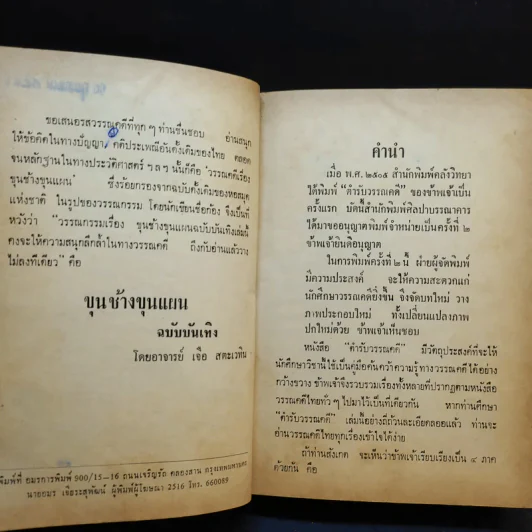 ขอเสนอรสวรรณคดีที่ทุก ๆ ท่านชื่นชอบ อ่านสนุก
ให้ข้อคิดในทางปัญญา คติประเพณีอันดั้งเดิมของไทย ตลอด
จนหลักฐานในทางประวัติศาสตร์ ฯลฯ นั้นก็คือ "วรรณคดีเรื่อง
ขุนช้างขุนแผน" ซึ่งร้อยกรองจากฉบับดั้งเดิมของหอสมุด
แห่งชาติ ในรูปของวรรณกรรม โดยนักเขียนชื่อก้อง จึงเป็นที่
หวังว่า "วรรณกรรมเรื่อง ขุนช้างขุนแผนฉบับบันเทิงเล่มนี้
คงจะให้ความสนุกลึกล้ำในทางวรรณคดี ถึงกับอ่านแล้ววาง
ไม่ลงทีเดียว" คือ
ขุนช้างขุนแผน
ฉบับบันเทิง
โดยอาจารย์ เจือ สตะเวทิน
พิมพ์ที่ อมรการพิมพ์ 500/15-16 ถนนเจริญรัถ คลองสาน กรุงเทพมหานคร
นายอมร เจียระสุพัฒน์ ผู้พิมพ์ผู้โฆษณา 2516 โทร. 660089
คำนำ
เมื่อ พ.ศ. ๒๕๐๕ สำนักพิมพ์คลังวิทยา
ได้พิมพ์ "ตำรับวรรณคดี" ของข้าพเจ้าเป็น
ครั้งแรก บัดนี้สำนักพิมพ์ศิลปาบรรณาคาร
ได้มาขออนุญาตพิมพ์จำหน่ายเป็นครั้งที่ ๒
ข้าพเจ้ายินดีอนุญาต
ในการพิมพ์ครั้งที่ ๒ นี้ ฝ่ายผู้จัดพิมพ์
มีความประสงค์ จะให้ความสะดวกแก่
นักศึกษาวรรณคดียิ่งขึ้น จึงจัดบทใหม่ วาง
ภาพประกอบใหม่ ทั้งเปลี่ยนแปลงภาพ
ปกใหม่ด้วย ข้าพเจ้าเห็นชอบ
หนังสือ "ตำรับวรรณคดี" มีวัตถุประสงค์ที่จะให้
นักศึกษาวิชานี้ใช้เป็นคู่มือค้นคว้าความรู้ทางวรรณคดีได้อย่าง
กว้างขวาง ข้าพเจ้าจึงรวบรวมเรื่องทั้งหลายที่ปรากฏตามหนังสือ
วรรณคดีไทยทั่ว ๆ ไปมาไว้เป็นที่เดียวกัน หากท่านศึกษา
"ตำรับวรรณคดี" เล่มนี้อย่างถี่ถ้วนละเอียดลออแล้ว ท่านจะ
อ่านวรรณคดีไทยทุกเรื่องเข้าใจได้ง่าย
ถ้าท่านสังเกต จะเห็นว่าข้าพเจ้าเรียบเรียงเป็น ๔ ภาค
ด้วยกัน คือ